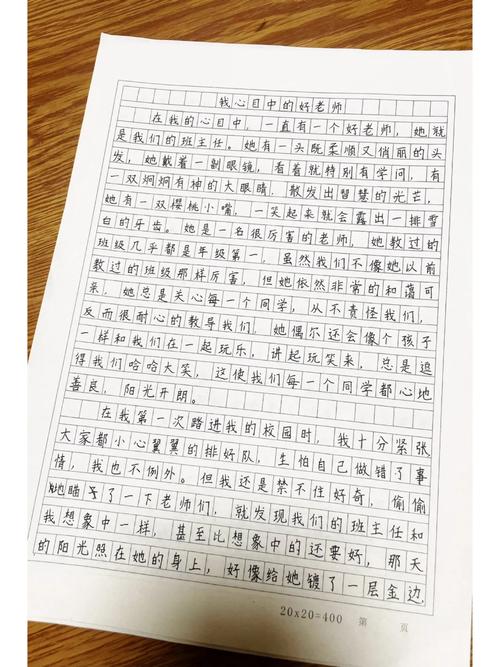 我心目中的好老师
在我的心目中，一直有一个好老师，她就
是我们的班主任。她有一头既柔顺又俏丽的头
发，她戴着一副眼镜，看着就特别有学问，有
一双炯炯有神的大眼睛，散发出智慧的光芒，
她有一双樱桃小嘴，一笑起来就会露出一排雪
白的牙齿。她是一名很厉害的老师，她教过的
班级几乎都是年级第一，虽然我们不像她以前
教过的班级那样厉害，但她依然非常的和蔼可
亲，她总是关心每一个同学，从不责怪我们，
反而很耐心的教导我们，她偶尔还会像个孩子
一样和我们在一起玩乐，讲起玩笑来，总是逗
得我们哈哈大笑，这使我们每一个同学都心地
善良，阳光开朗。
在我第一次踏进我的校园时，我十分紧张
大家都小心翼翼的排好队，生怕自己做错了事
情，我也不例外。但我还是禁不住好奇，偷偷
地瞄了一下老师们，就发现我们的班主任和
我想象中一样，甚至比想象中的还要好，那天
的阳光照在她的身上，好像给她镀了一层金边，
20x20=400 第 页